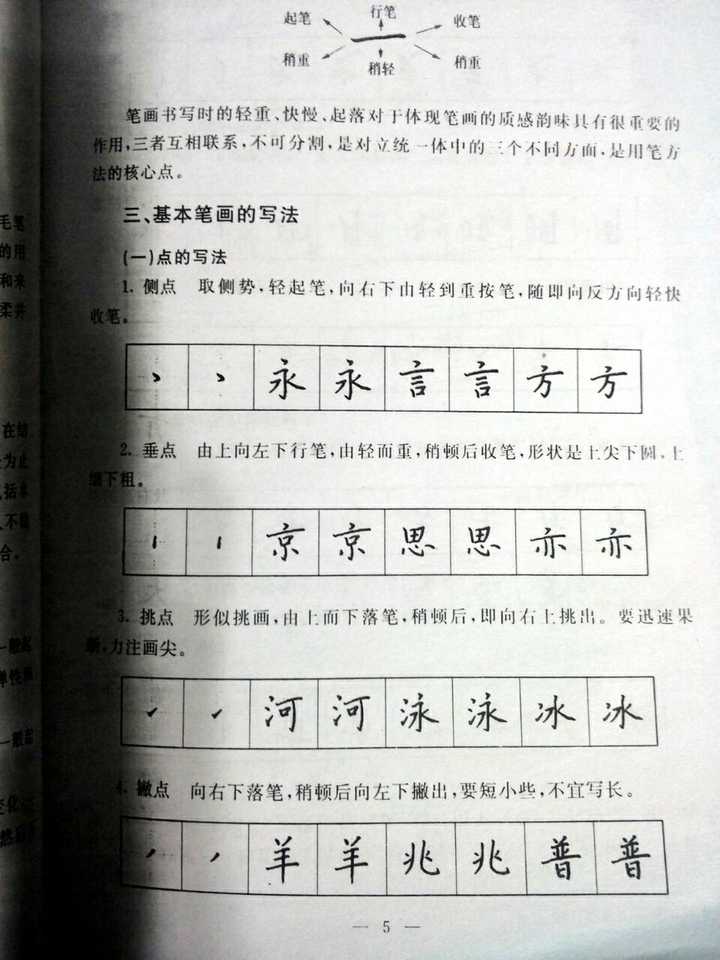 起笔 行笔 收笔
稍重 稍轻 稍重
笔画书写时的轻重、快慢、起落对于体现笔画的质感韵味具有很重要的
作用,三者互相联系,不可分割,是对立统一体中的三个不同方面,是用笔方
法的核心点。
三、基本笔画的写法
(一)点的写法
1. 侧点 取侧势,轻起笔,向右下由轻到重按笔,随即向反方向轻快
收笔。
永 永 言 言 方 方
2. 垂点 由上向左下行笔,由轻而重,稍顿后收笔,形状是上尖下圆,上
细下粗。
京 京 思 思 亦 亦
3. 挑点 形似挑画,由上而下落笔,稍顿后,即向右上挑出。要迅速果
断,力注画尖。
河 河 泳 泳 冰 冰
4. 撇点 向右下落笔,稍顿后向左下撇出,要短小些,不宜写长。
羊 羊 兆 兆 普 普
— 5 —
毛笔
的用
和来
柔并
在结
为止
括本
不能
合。
一般起
弹性
一般起
变化